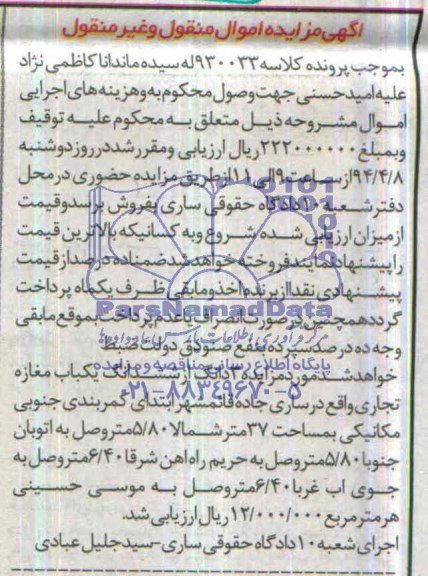 آگهی مزایده اموال منقول وغیر منقول
بموجب پرونده کلاسه ۹۳۰۰۳۳له سیده ماندانا کاظمی نژاد
علیه امید حسنی جهت وصول محکوم به وهزینه های اجرایی
اموال مشروحه ذیل متعلق به محکوم علیه توقیف
وبمبلغ ۲۲۲۰۰۰۰۰۰ریال ارزیابی ومقررشددرروزدوشنبه
۹۴/۴/۸ازساعت۹الی۱۱ازطریق مزایده حضوری درمحل
دفترشعبه۱۰دادگاه حقوقی ساری بفروش برسدوقیمت
ازمیزان ارزیابی شده شروع وبه کسانیکه بالاترین قیمت
راپیشنهادنمایندفروخته خواهدشدضمناده درصدازقیمت
پیشنهادی نقداازبرنده اخذومابقی ظرف یکماه پرداخت
گرددهمچنین درصورت انصراف یاعدم پرداخت بموقع مابقی
وجه ده درصدسپرده بنفع صندوق دولت ضبط
خواهدشد.موردمزایده۲دانگ ازشش دانگ یکباب مغازه
تجاری واقع درساری جاده قائمشهرابتدای کمربندی جنوبی
مکانیکی بمساحت ۳۷مترشمالا۵/۸۰متروصل به اتوبان
جنوبا۵/۸۰متروصل به حریم راه اهن شرقا۶/۴۰متروصل به
جوی اب غربا۶/۴۰متروصل به موسی حسینی
هرمترمربع ۱۲/۰۰۰/۰۰۰ریال ارزیابی شد.
اجرای شعبه۱۰دادگاه حقوقی ساری-سیدجلیل عبادی
ParsNamadData
پایگاه اطلاع رسانی مناقصه و مزایده
۰۲۱-۸۸۳۴۹۶۷۰-۵